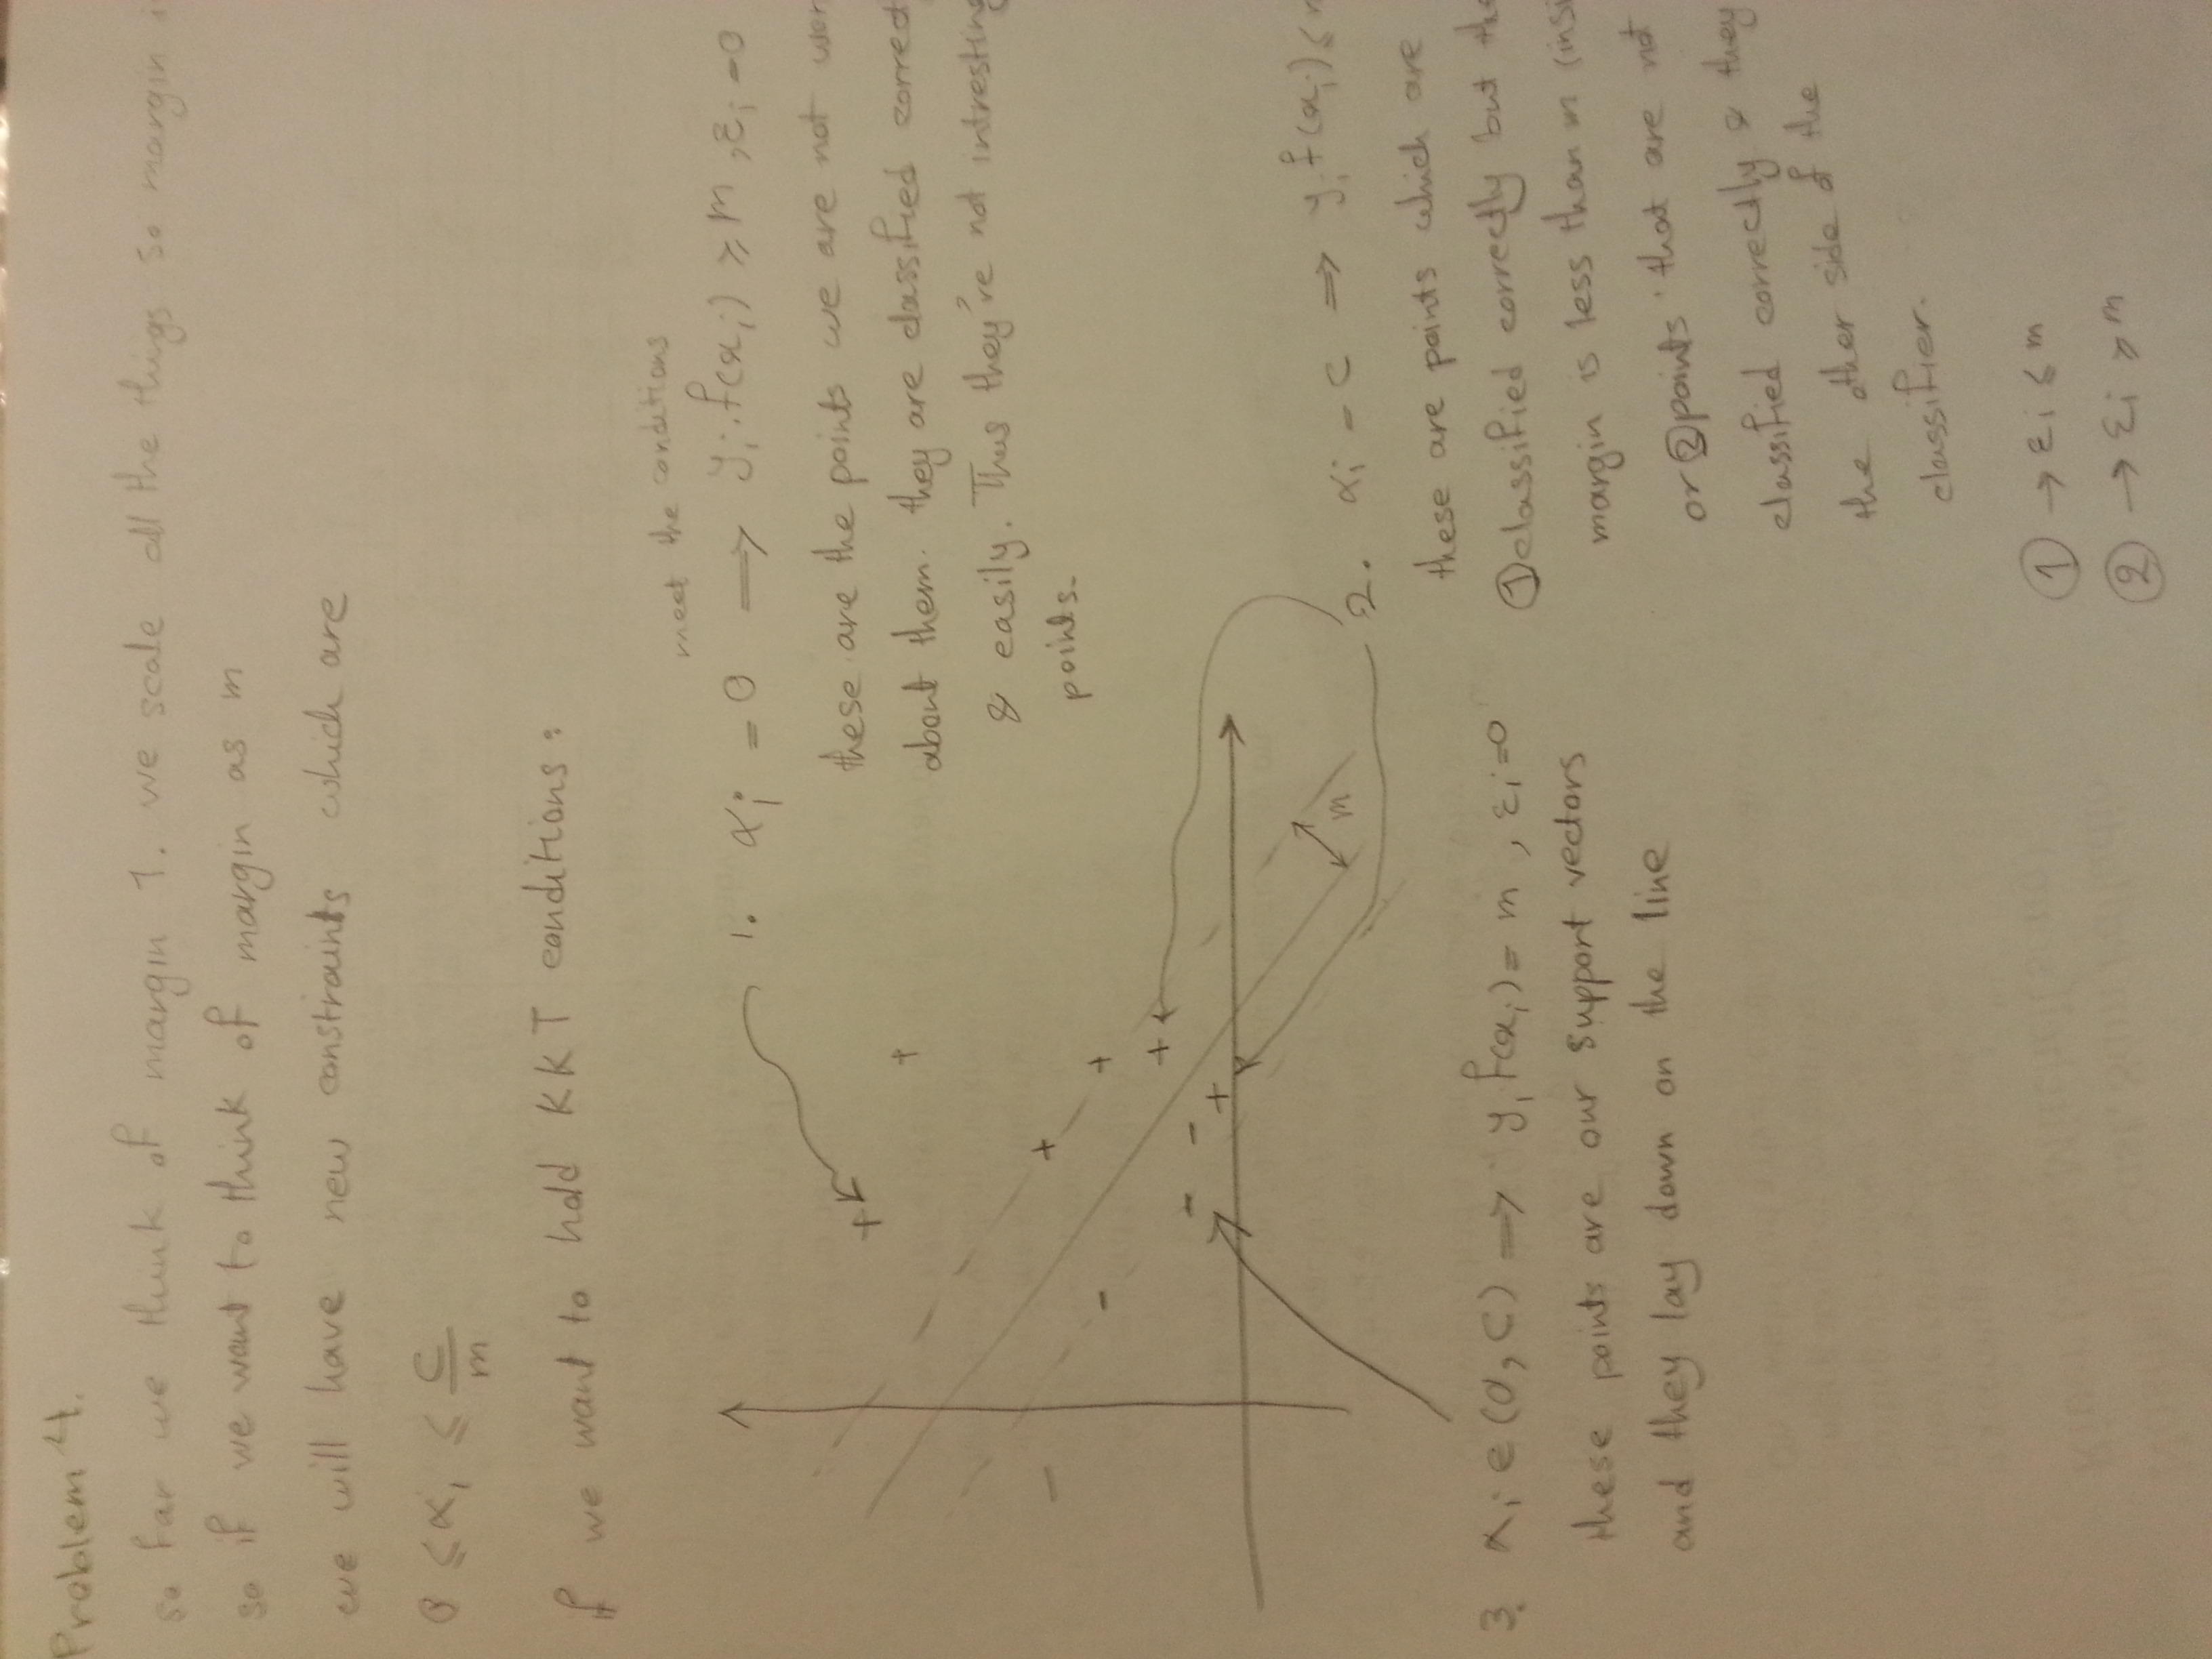 Problem 4.
so far we think of margin 1. we scale all the things so margin
so if we want to think of margin as m
we will have new constraints which are
0 ≤ αi ≤ C/m
If we want to hold KKT conditions:
meet the conditions
1. αi = 0 ⟹ yi.f(xi) ≥ m, εi = 0
these are the points we are not
about them. they are classified
& easily. Thus they're not intresting
points.
m
2. αi = C ⟹ yi f(xi) ≤
these are points which are
① classified correctly but
margin is less than m
or ② points that are not
classified correctly & they
the other side of the
classifier.
① → εi ≤ m
② → εi ≥ m
3. αi ∈ (0, C) ⟹ yi f(xi) = m, εi = 0
these points are our support vectors
and they lay down on the line